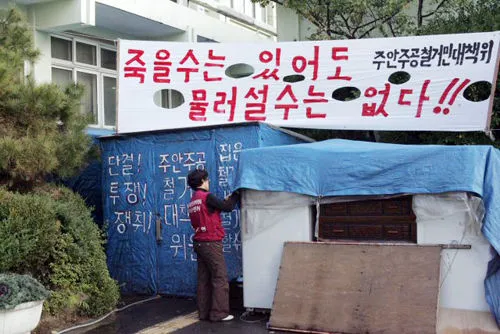 죽을수는 있어도
주안주공철거민대책위
물러설수는 없다!!
단결!
투쟁!
쟁취!
주안주공
철거
대책
위원
집은